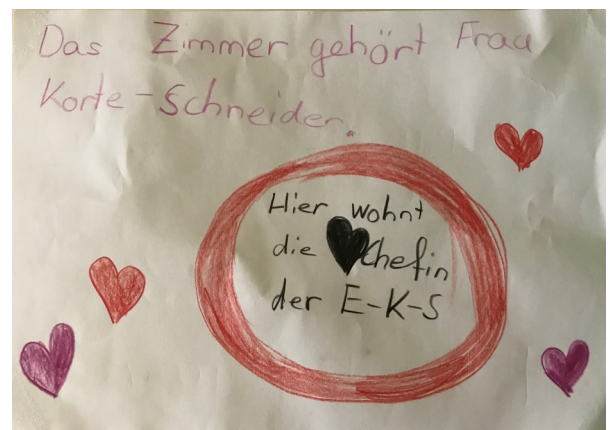 Das Zimmer gehört Frau
Korte-Schneider.
Hier wohnt
die Chefin
der E-K-S